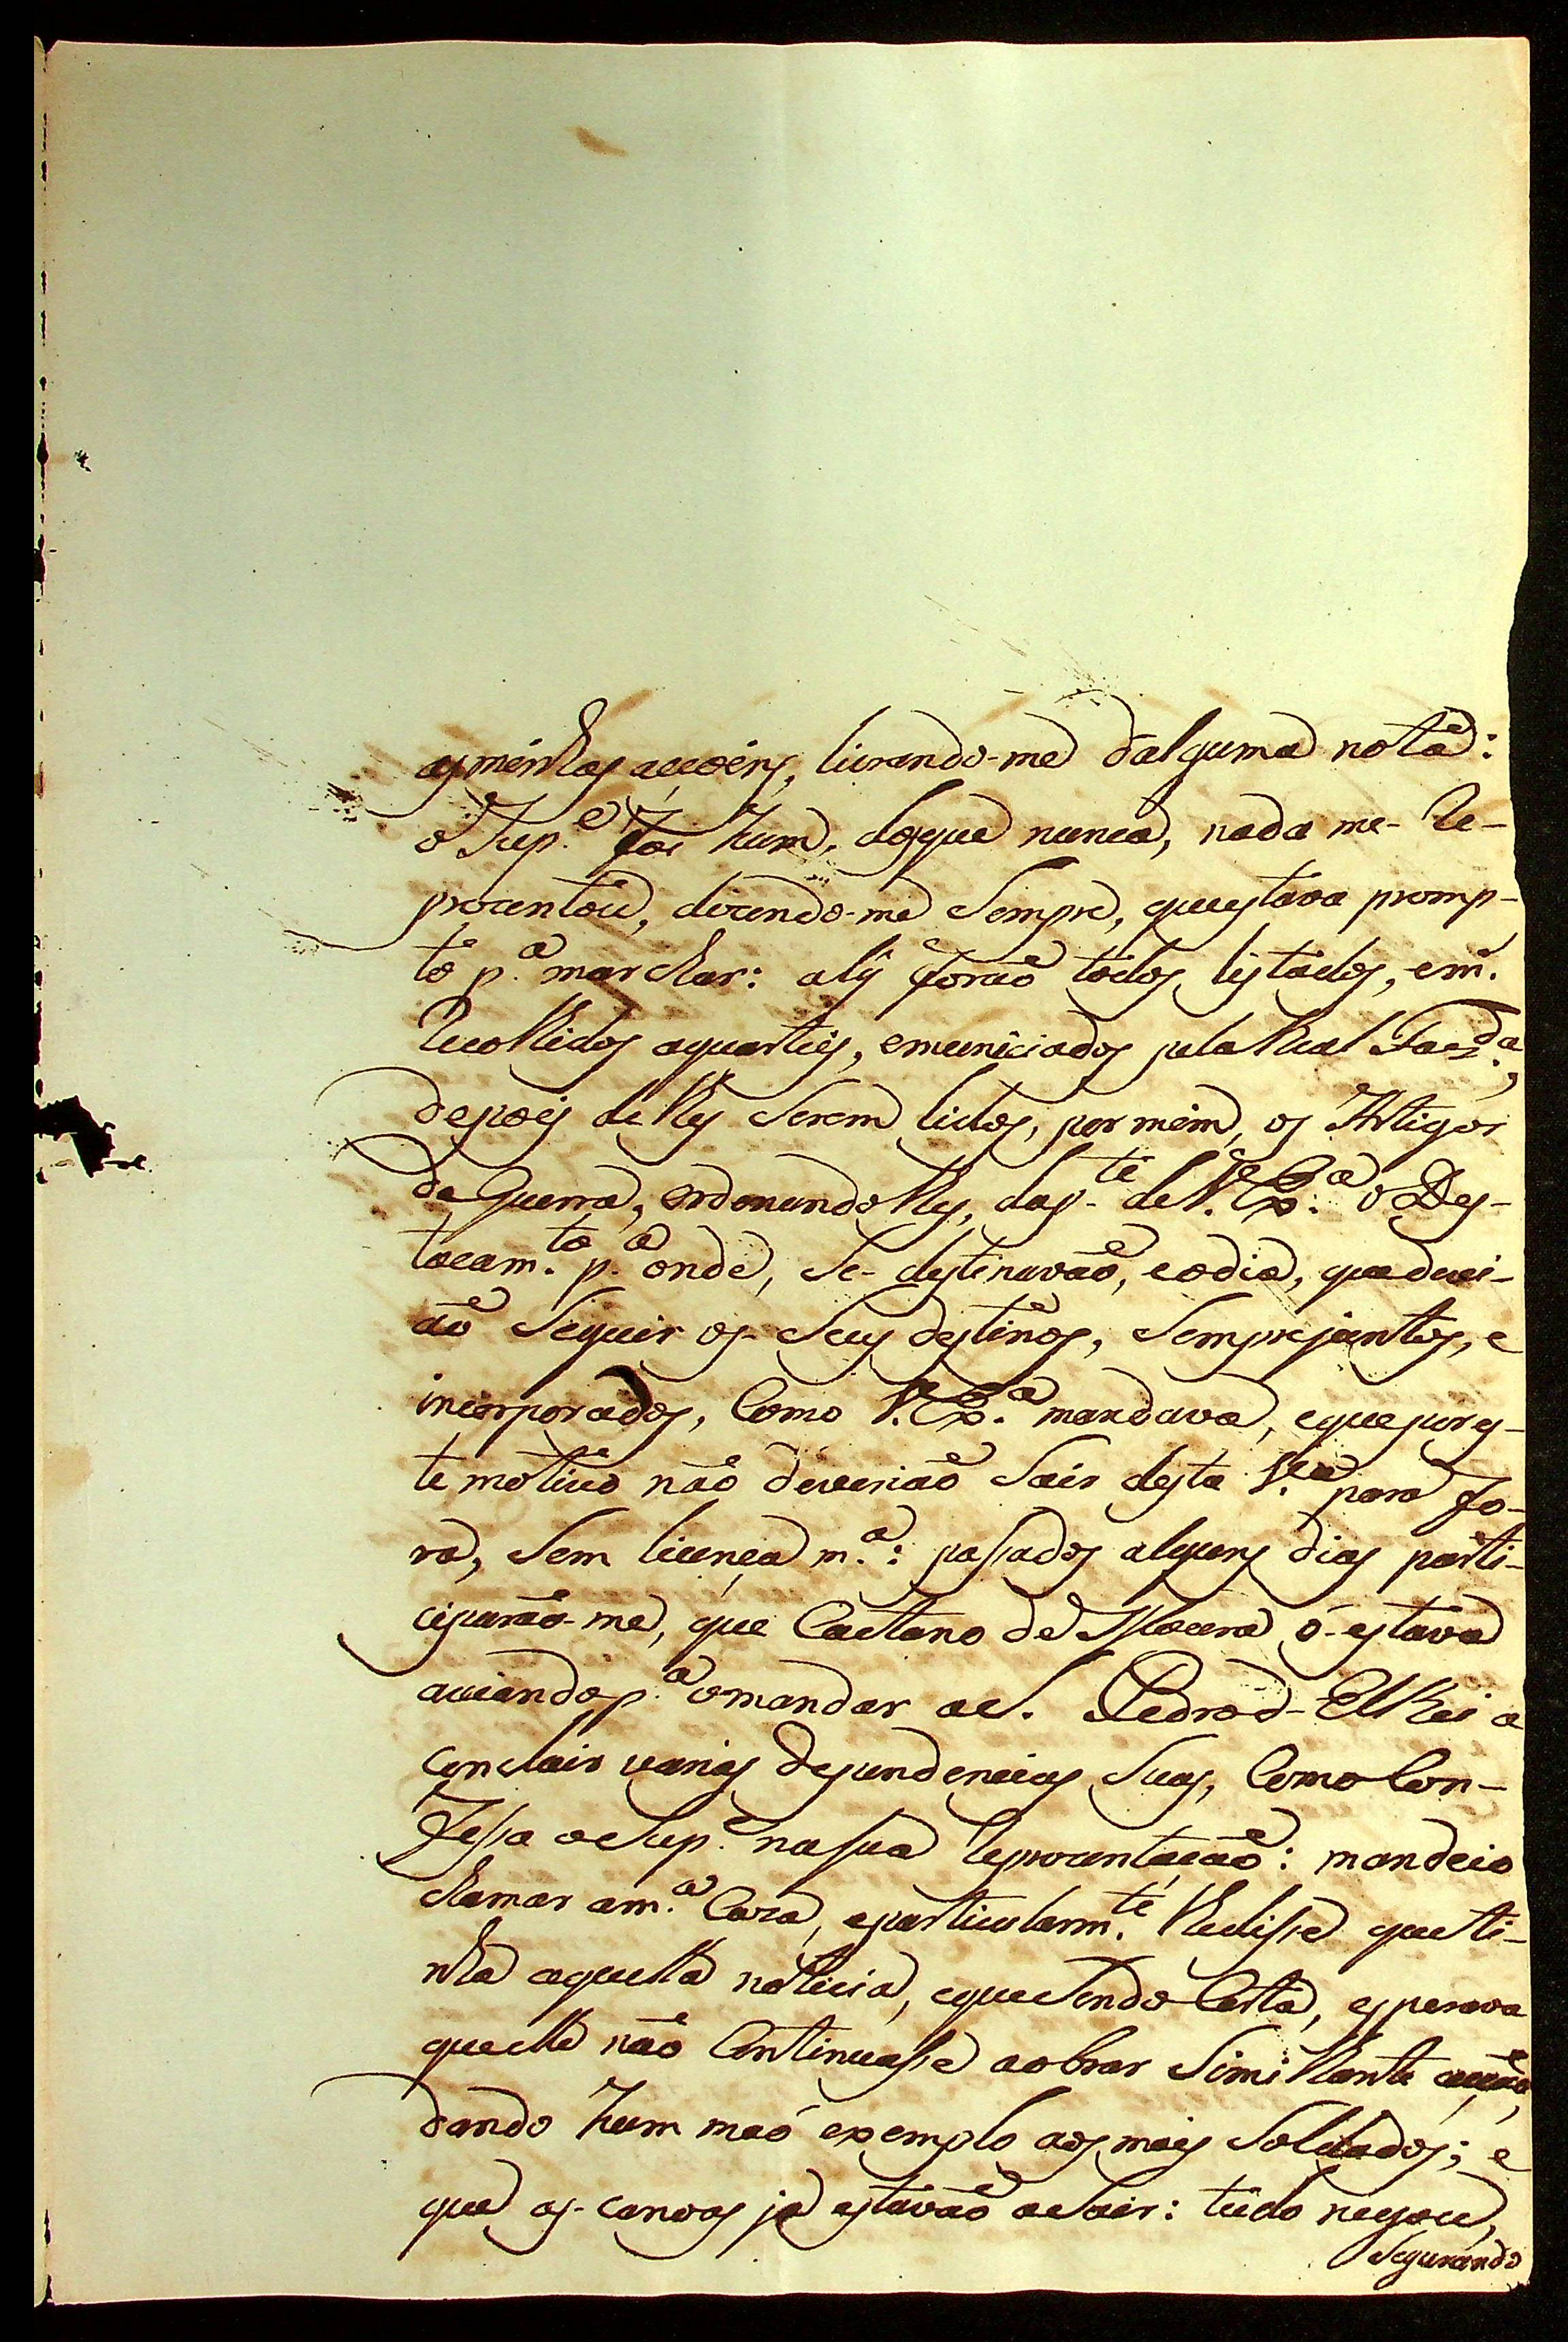 as minhas accoẽns, livrando-me dalguma nota:
o Sup.e foi hum, dos que nunca, nada me- re-
prezentou, dizendo-me Sempre, que estava promp-
to p.a marchar: alÿ foraõ todos listados, em.
recolhidos aquarteis, emuniciados pela Real Faz.da,
depois de lhes Serem lidos, por mim, os Artigos
de Guerra, ordenando lhes, dap.te de V. Ex.a o Des-
tacam.to p.a onde, Se- destinavaõ, eodia, que devi-
aõ Seguir os- Seus destinos, Sempre juntos, e
incorporados, Como V. Ex.a mandava, eque por es-
te motivo naõ deveriaõ Sair desta V.a para fo-
ra, Sem licença m.a: passados alguns dias parti-
ciparaõ-me, que Caetano de o- estava
aviando p.a omandar aS. Pedro d- El Rei a
concluir varias dependencias Suas, Como Con-
fessa oSup.e na sua reprezentaçaõ: mandeio
chamar am.a Caza, eparticularm.te lhe disse que ti-
nha aquella noticia, eque Sendo Certa, esperava
que elle naõ Continuasse aobrar Similhante acçaõ,
dando hum maó exemplo aos mais Soldados; e
que as- canoas ja estavaõ aSair: tudo negou,
Segurando